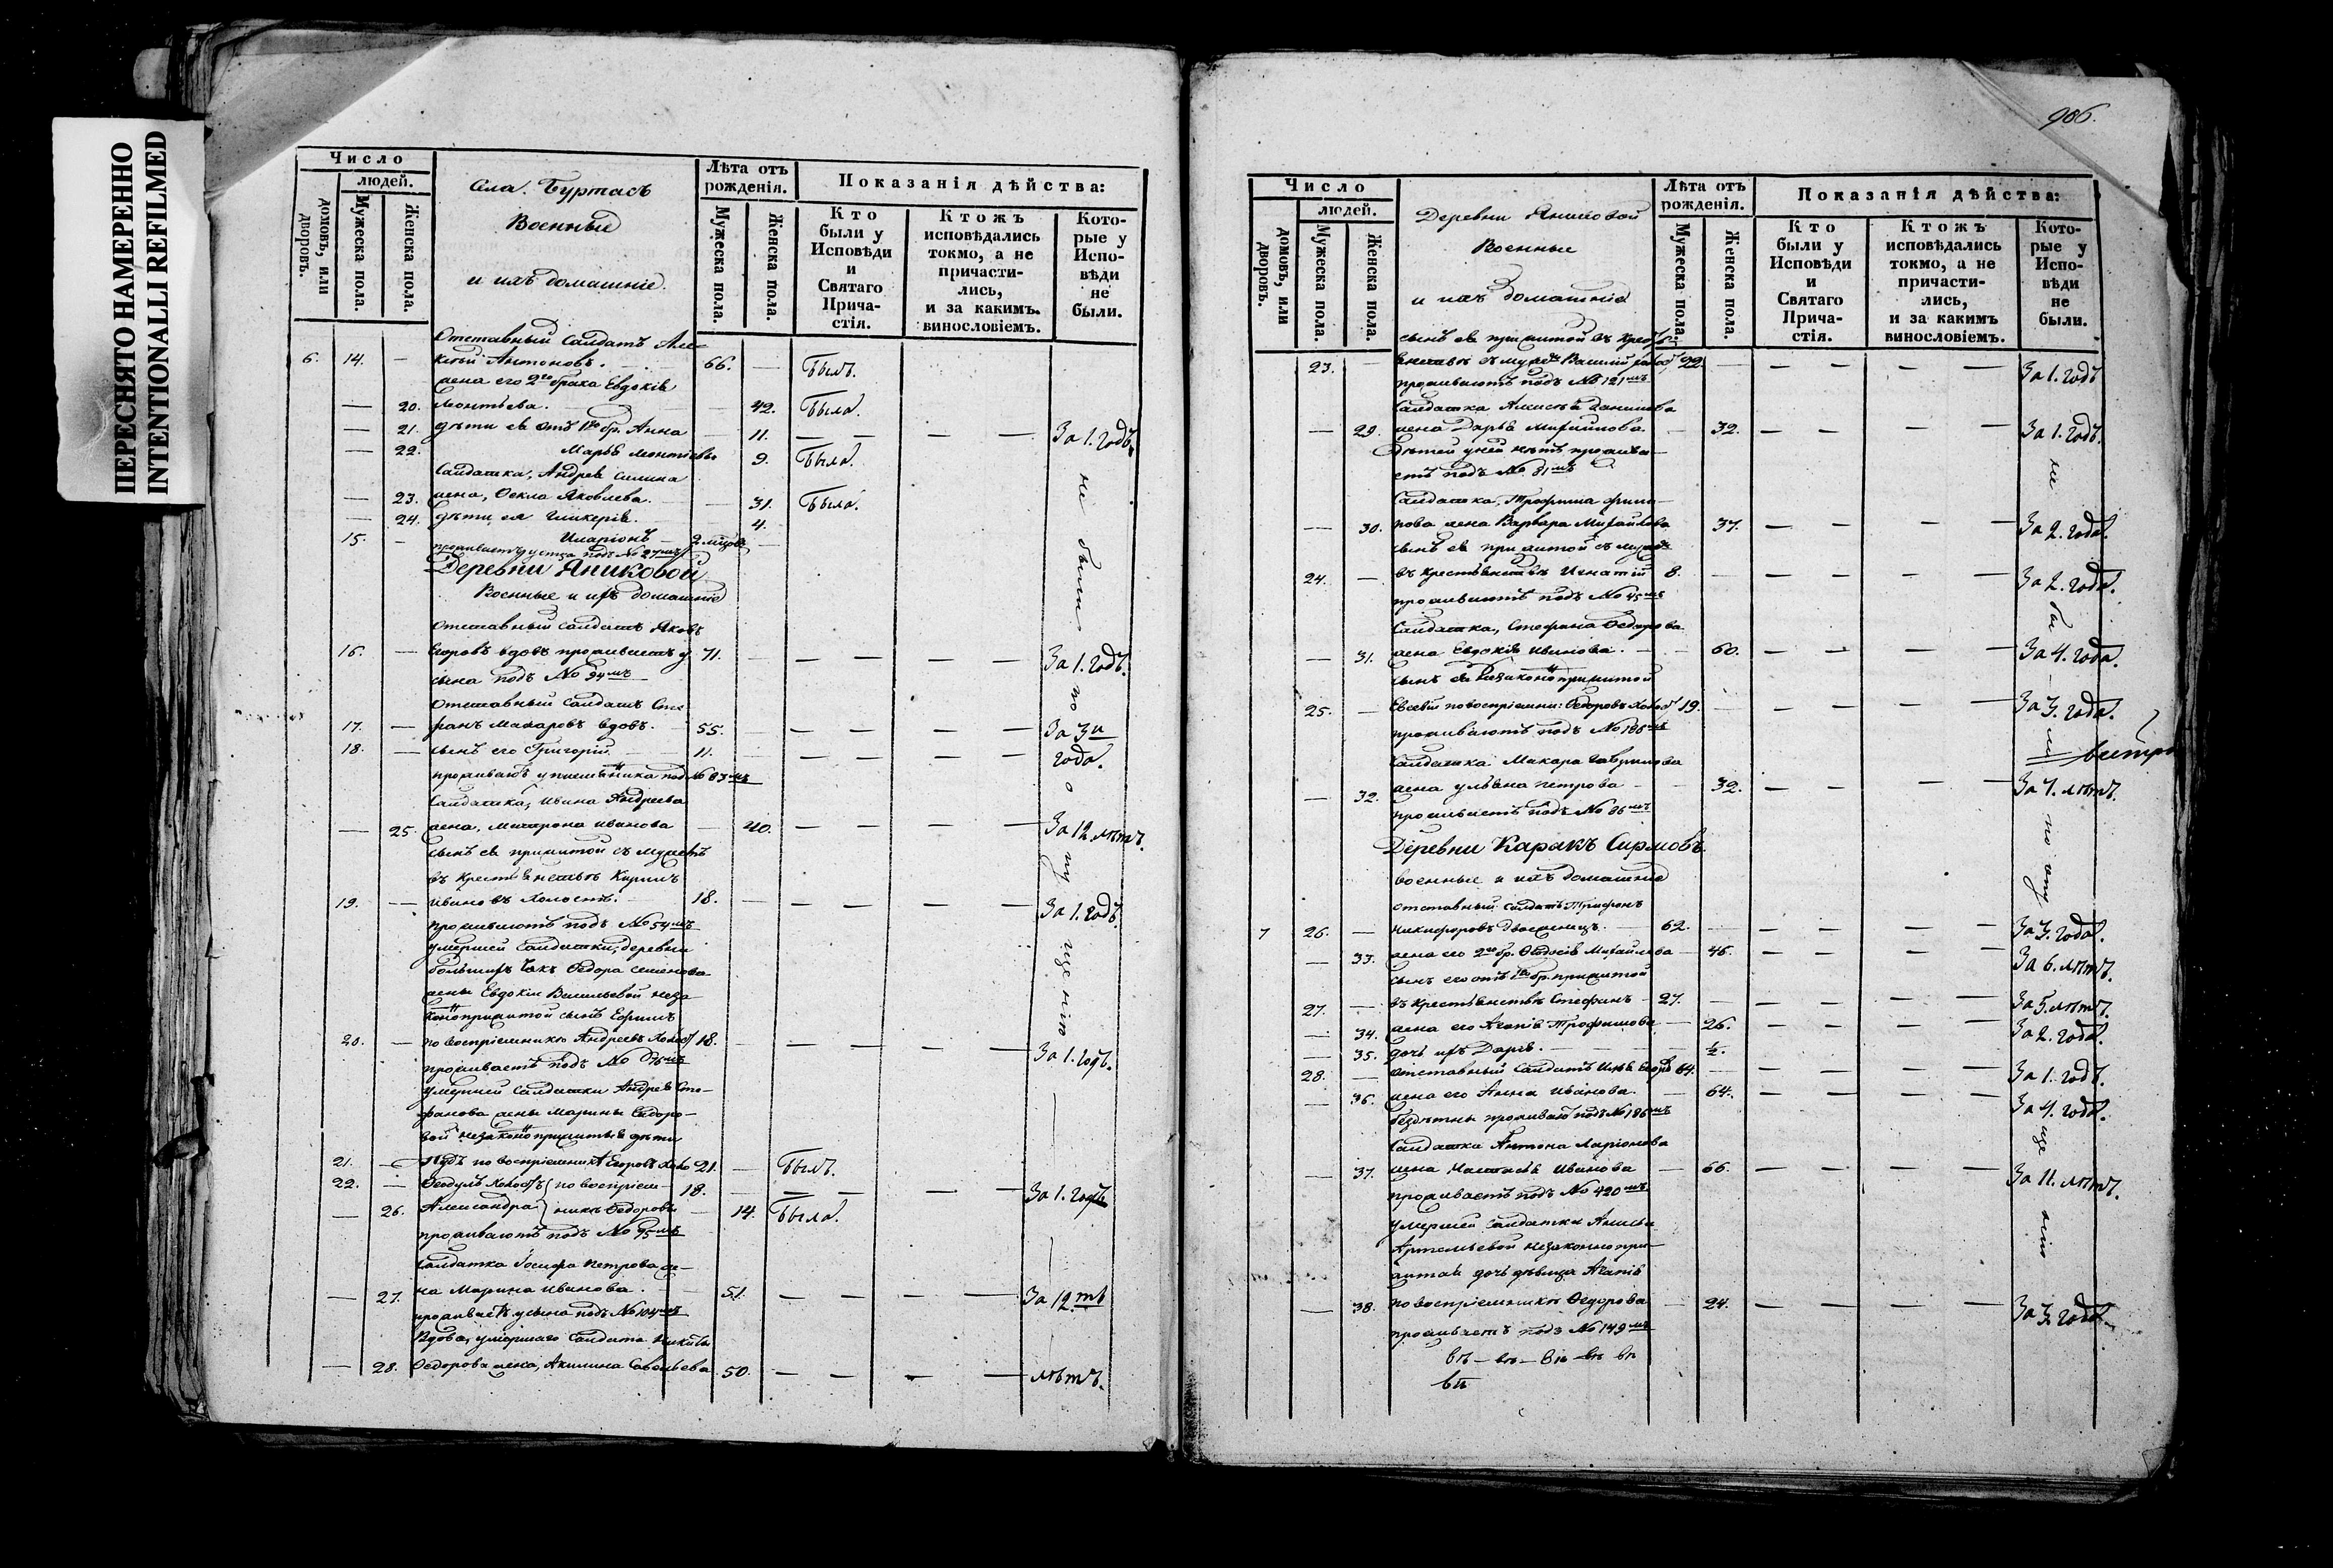 ПЕРЕСНЯТО НАМЕРЕННО
INTENTIONALLI REFILMED
Число
людей.
домовъ, или дворовъ.
Мужеска пола.
Женска пола.
Села Буртасъ
Военные
и ихъ домашніе.
Лѣта отъ рожденія.
Мужеска пола.
Женска пола.
Показанія дѣйства:
Кто были у Исповѣди и Святаго Прича-стія.
Ктожъ исповѣдались токмо, а не причасти-лись, и за какимъ винословіемъ.
Кото-рые у Испо-вѣди не были.
Отставный Салдатъ Але-
6. 14. — ксѣй Антоновъ. 66. — Былъ.
жена его 2го брака Евдокія
— 20. Леонтьева. — 42. Была.
— 21. дѣти ея отъ 1го бр. Анна — 11. — — — — За 1. годъ.
— 22. Марья Леонтьевы 9. Была.
Салдатка, Андрея Силина
— 23. жена, Ѳекла Яковлева. — 31. Была.
— 24. дѣти ея Гликерія. 4.
15. — Иларіонъ — 2 мѣсяц —
проживаетъ у отца подъ № 27мъ
Деревни Яниковой
Военные и ихъ домашніе
Отставный салдатъ Яковъ
16. — Егоровъ вдовъ проживаетъ у 71. — — — — За 1. годъ.
сына подъ № 94мъ
Отставный Салдатъ Сте
17. — фанъ Макаровъ вдовъ. 55. — — — — За 3и
18. — сынъ его Григорій 11. — — — — года.
проживаютъ у племянника под № 83мъ
Салдатка, Ивана Андреева
— 25. жена, Матрона Иванова — 40. — — — — За 12. лѣтъ.
сынъ ея прижитой съ мужемъ
въ крестьянствѣ Кирилъ
19. — Ивановъ холостъ. — 18. — — — — За 1. годъ.
проживаютъ подъ № 54мъ
умершей Салдатки, деревни
Большихъ Чакъ Ѳедора Семенова
жены Евдокіи Васильевой неза
коноприжитой сынъ Ефимъ
20. — по воспріемнику Андреевъ холост 18. — — — — За 1. годъ.
проживаетъ подъ № 76мъ
умершей Салдатки Андрея Сте-
фанова жены Марины Ѳедоро-
вой незаконоприжитые дѣти
21. — по воспріемнику Егоровъ холо 21. — Былъ.
22. — Ѳеодулъ холостъ по воспріем- 18. — — — — За 1. годъ
— 26. Александра никъ Ѳедоровы — 14. Была.
проживаютъ подъ № 95мъ
Салдатка Іосифа Петрова же-
— 27. на Марина Иванова. 51. — — — — За 12ть
проживаетъ у сына подъ № 104мъ
Вдова, умершаго Салдата Никиты
— 28. Ѳедорова жена, Акилина Савельева 50. — — — — лѣтъ.
не были по опущенію
906.
Число
людей.
домовъ, или дворовъ.
Мужеска пола.
Женска пола.
Деревни Яниковой
Военные
и ихъ домашніе
Лѣта отъ рожденія.
Мужеска пола.
Женска пола.
Показанія дѣйства:
Кто были у Исповѣди и Святаго Прича-стія.
Ктожъ исповѣдались токмо, а не причасти-лись, и за какимъ винословіемъ.
Кото-рые у Испо-вѣди не были.
сынъ ея прижитой въ крестья-
23. — нствѣ съ мужемъ Василій холост 22. — — — — За 1. годъ
проживаютъ подъ № 121мъ
Салдатка Алексѣя Данилова
— 29. жена Дарья Михайлова — 32. — — — — За 1. годъ.
дѣтей у ней нѣтъ прожива-
етъ подъ № 81мъ
Салдатка, Трофима Фили-
— 30. пова жена Варвара Михайлова 37. — — — — За 2. года.
сынъ ея прижитой съ мужемъ
24. — въ крестьянствѣ Игнатій 8. — — — — За 2. года.
проживаютъ подъ № 45мъ
Салдатка, Стефана Ѳедорова
— 31. жена Евдокія Иванова. — 60. — — — — За 4. года.
сынъ ея незаконоприжитой
25. — Евсевій по воспріемни: Ѳедоровъ холост 19. — — — — За 3. года.
проживаютъ подъ № 188мъ
Салдатка Макара Гаврилова
— 32. жена Ульяна Петрова — 32. — — — — За 7. лѣтъ.
проживаетъ подъ № 86мъ
Деревни Каракъ Сирмовъ
военные и ихъ домашніе
отставный салдатъ Трифонъ
7 26. — Никифоровъ двоеженецъ. — 62. — — — — За 3. года.
— 33. жена его 2го бр. Ѳеодосія Михайлова — 46. — — — За 6. лѣтъ.
сынъ его отъ 1го бр. прижитой
27. — въ крестьянствѣ Стефанъ — 27. — — — — За 5. лѣтъ.
— 34. жена его Агапія Трофимова — 26. — — — — За 2. года.
— 35. дочь ихъ Дарія. ½.
28. — отставный Салдатъ Илья 64. — — — — За 1. годъ.
— 36. жена его Анна Иванова. — 64. — — — — За 4. года.
бездѣтны проживаютъ подъ № 186мъ
Салдатка Антона Ларіонова
— 37. жена Настасья Иванова — 66. — — — — За 11. лѣтъ.
проживаетъ подъ № 420мъ
умершей Салдатки
Артемьевой незаконно при-
житая дочь дѣвица Агапія
— 38. по воспріемнику Ѳедорова — 24. — — — — За 3. года.
проживаетъ подъ № 149мъ
не были по опущенію